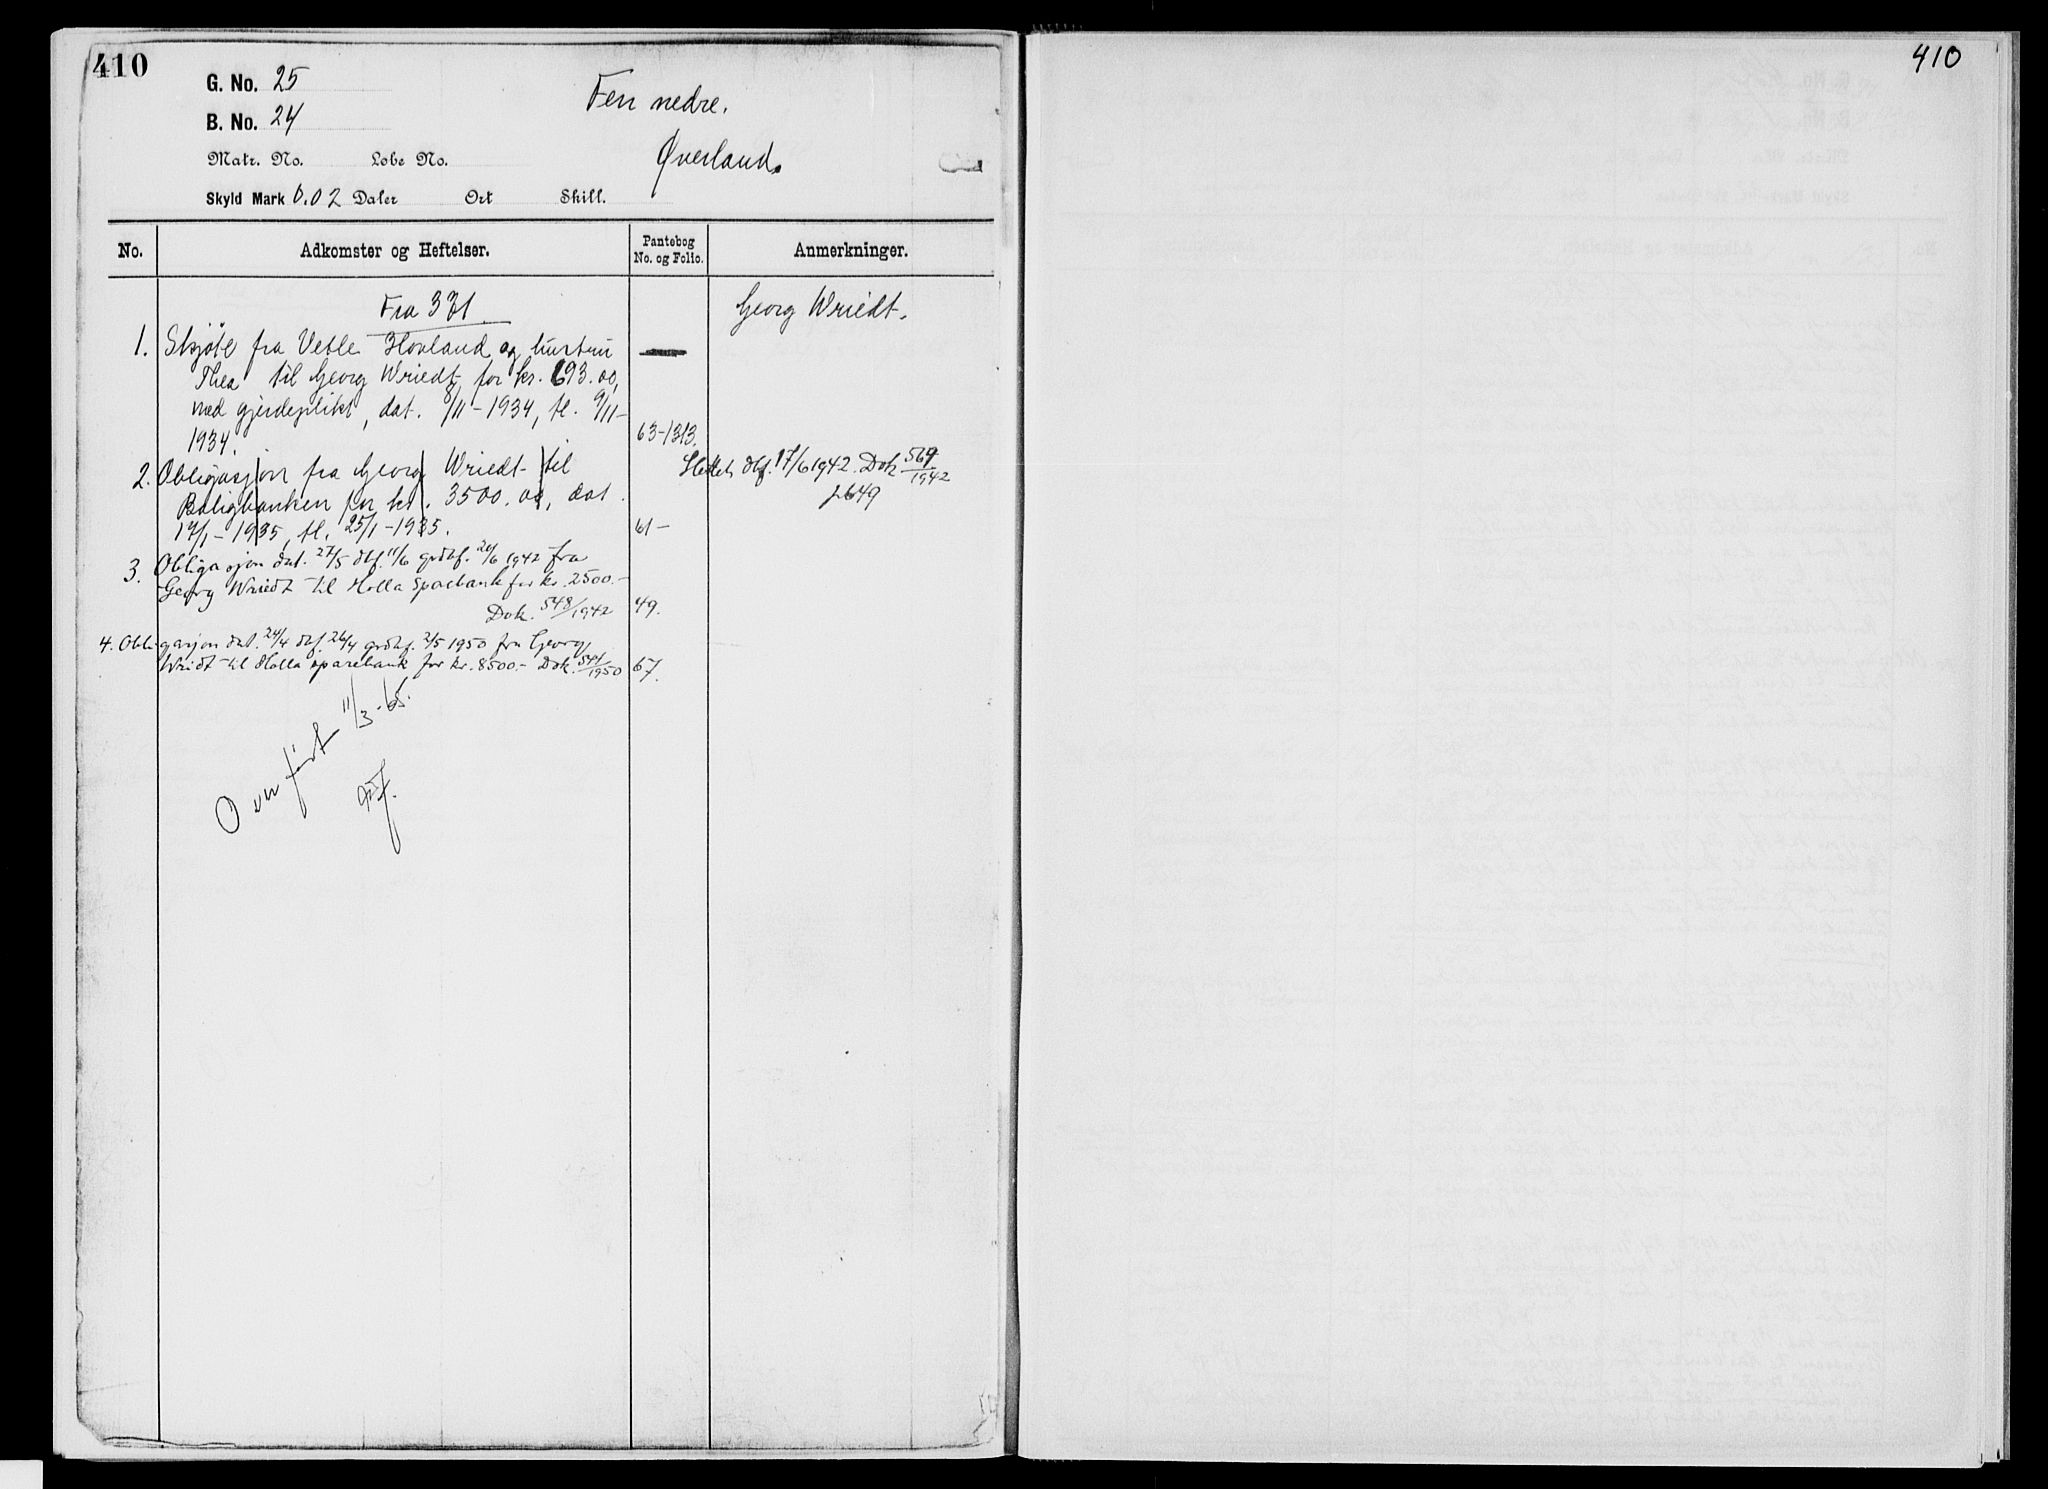 410
G. No. 25
Fen nedre.
B. No. 24
Matr. No. Løbe No.
Øverland.
Skyld Mark 0.02 Daler Ort Skill.
No. Adkomster og Heftelser. Pantebog No. og Folio. Anmerkninger.
Fra 331. Georg Wriedt.
1. Skjøte fra Vetle Hovland og hustru
Thea til Georg Wriedt for kr. 693.00,
med gjerdeplikt, dat. 8/11-1934, tl. 9/11-
1934. 63-1313.
2. Obligasjon fra Georg Wriedt til
Boligbanken for kr. 3500.00, dat.
17/1-1935, tl. 25/1-1935. 61-
Slettet dbf. 17/6 1942. Dok 569/1942
3. Obligasjon dat. 27/5 dbf. 11/6 grdbf. 20/6 1942 fra
Georg Wriedt til Holla Sparebank for kr. 2500.-
Dok. 548/1942 49.
4. Obligasjon dat. 24/4 dbf. 26/4 grdbf. 2/5 1950 fra Georg
Wridt til Holla sparebank for kr. 8500.- Dok. 541/1950 67.
Overført 11/3-65.
410